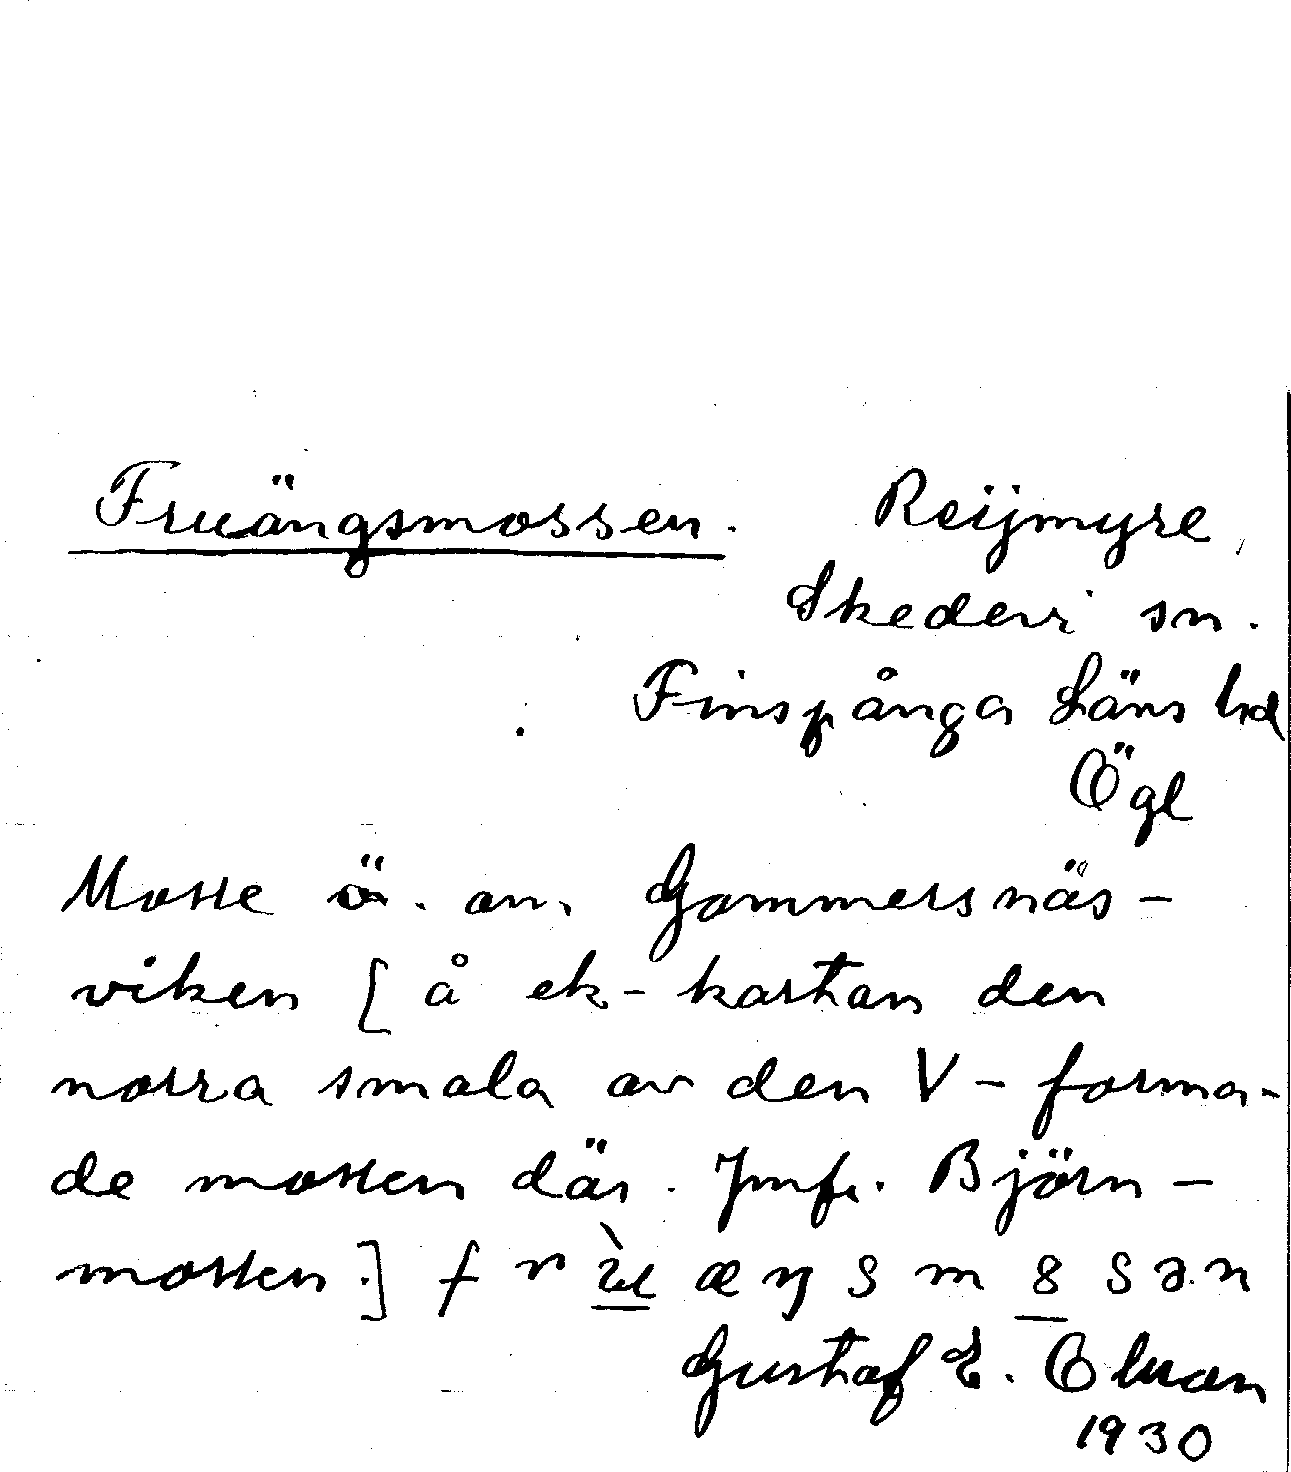 Fruängsmossen. Reijmyre,
Skedevi sn.
Finspånga Läns hd
Ögl
Mosse ö. om Gammersnäs-
viken [å ek-kartan den
norra smala av den V-forma-
de mossen där. Jmfr. Björn-
mossen.] f r ù æ ŋ s m 8 s ə n
Gustaf E.
1930